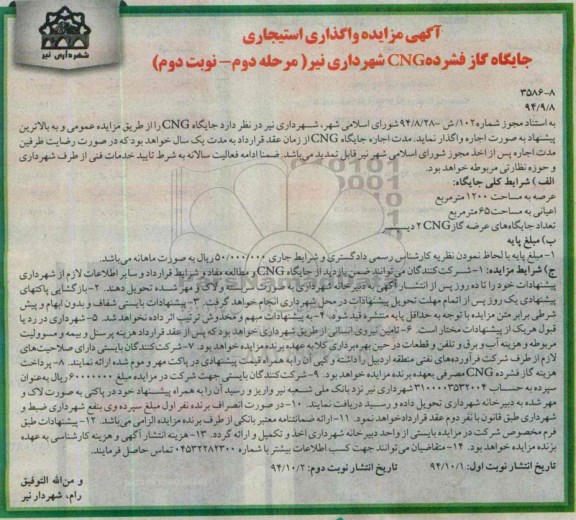 شهرداری نیر
آگهی مزایده واگذاری استیجاری
جایگاه گاز فشرده CNG شهرداری نیر( مرحله دوم– نوبت دوم)
۳۵۸۶-۸
۹۴/۹/۸
به استناد مجوز شماره ۱۰۲/ ش -۹۴/۸/۲۸ شورای اسلامی شهر، شهرداری نیر در نظر دارد جایگاه CNG را از طریق مزایده عمومی و به بالاترین
پیشنهاد به صورت اجاره واگذار نماید. مدت اجاره جایگاه CNG از زمان عقد قرارداد به مدت یک سال خواهد بود که در صورت رضایت طرفین
مدت اجاره پس از اخذ مجوز شورای اسلامی شهر نیر قابل تمدید می‌باشد. ضمنا ادامه فعالیت سالانه به شرط تایید خدمات فنی از طرف شهرداری
و حوزه نظارتی مربوطه خواهد بود.
الف ) شرایط کلی جایگاه:
عرصه به مساحت ۱۲۰۰ مترمربع
اعیانی به مساحت ۶۵ مترمربع
تعداد جایگاه‌های عرضه گاز CNG ۲ دیسپنسر
ب) مبلغ پایه
۱- مبلغ پایه با لحاظ نمودن نظریه کارشناس رسمی دادگستری و شرایط جاری ۵۰/۰۰۰/۰۰۰ ریال به صورت ماهانه می‌باشد.
ج) شرایط مزایده: ۱- شرکت کنندگان می‌توانند ضمن بازدید از جایگاه CNG و مطالعه مفاد و شرایط قرارداد و سایر اطلاعات لازم از شهرداری
پیشنهادات خود را تا ده روز پس از انتشار آگهی به دبیرخانه شهرداری به صورت دربسته و لاک و مهر شده تحویل دهند. ۲- بازگشایی پاکتهای
پیشنهادی یک روز پس از اتمام مهلت تحویل پیشنهادات در محل شهرداری انجام خواهد گرفت. ۳- پیشنهادات بایستی شفاف و بدون ابهام و پیش
شرطی برابر متن مزایده با توجه به حداقل پایه منتشره قید شود. ۴- به پیشنهادات مبهم و مخدوش ترتیب اثر داده نخواهد شد. ۵- شهرداری در رد یا
قبول هریک از پیشنهادات مختار است. ۶- تامین نیروی انسانی از طریق شهرداری خواهد بود که پس از عقد قرارداد هزینه پرسنل و بیمه و مسوولیت
مربوطه و هزینه آب و برق و تلفن و قطعات در حین بهره‌برداری کلا به عهده برنده مزایده خواهد بود. ۷- شرکت‌کنندگان بایستی دارای صلاحیت‌های
لازم از طرف شرکت فرآورده‌های نفتی منطقه اردبیل را داشته و کپی آن را به همراه قیمت پیشنهادی در پاکت مهر و موم شده ارائه نمایند. ۸- پرداخت
هزینه گاز فشرده CNG مصرفی بعهده برنده مزایده خواهد بود. ۹- شرکت‌کنندگان بایستی جهت شرکت در مزایده مبلغ ۶۰۰۰۰۰۰۰ ریال به عنوان
سپرده به حساب ۳۱۰۰۰۰۳۵۳۲۰۰۴ شهرداری نیر نزد بانک ملی شعبه نیر واریز و رسید آن را به همراه پیشنهاد خود در پاکتی به صورت لاک و
مهر شده به دبیرخانه شهرداری تحویل داده و رسید دریافت نمایند. ۱۰- در صورت انصراف برنده نفر اول مبلغ سپرده وی بنفع شهرداری ضبط و
شهرداری طبق قانون با نفر دوم عقد قرارداد خواهد نمود. ۱۱- ارائه ضمانتنامه معتبر بانکی از طرف برنده مزایده الزامی می‌باشد. ۱۲- پیشنهادات طبق
فرم مخصوص شرکت در مزایده بایستی از واحد دبیرخانه شهرداری اخذ و تکمیل و ارائه گردد. ۱۳- هزینه انتشار آگهی و هزینه کارشناسی به عهده
برنده مزایده خواهد بود. ۱۴- متقاضیان می‌توانند جهت کسب اطلاعات بیشتر با شماره ۰۴۵۳۲۲۸۲۳۰۰ تماس حاصل فرمایند.
تاریخ انتشار نوبت اول: ۹۴/۱۰/۱ تاریخ انتشار نوبت دوم: ۹۴/۱۰/۲
و من‌الله التوفیق
رام، شهردار نیر